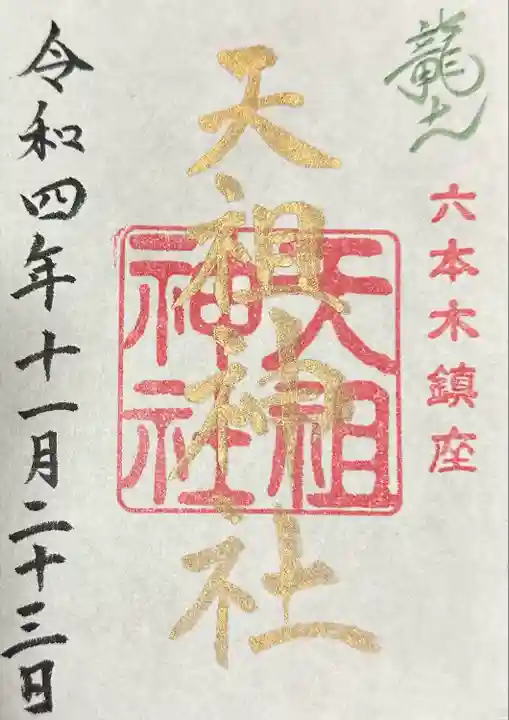 龍土
六本木鎮座
天祖神社
天祖
神社
令和四年十一月二十三日